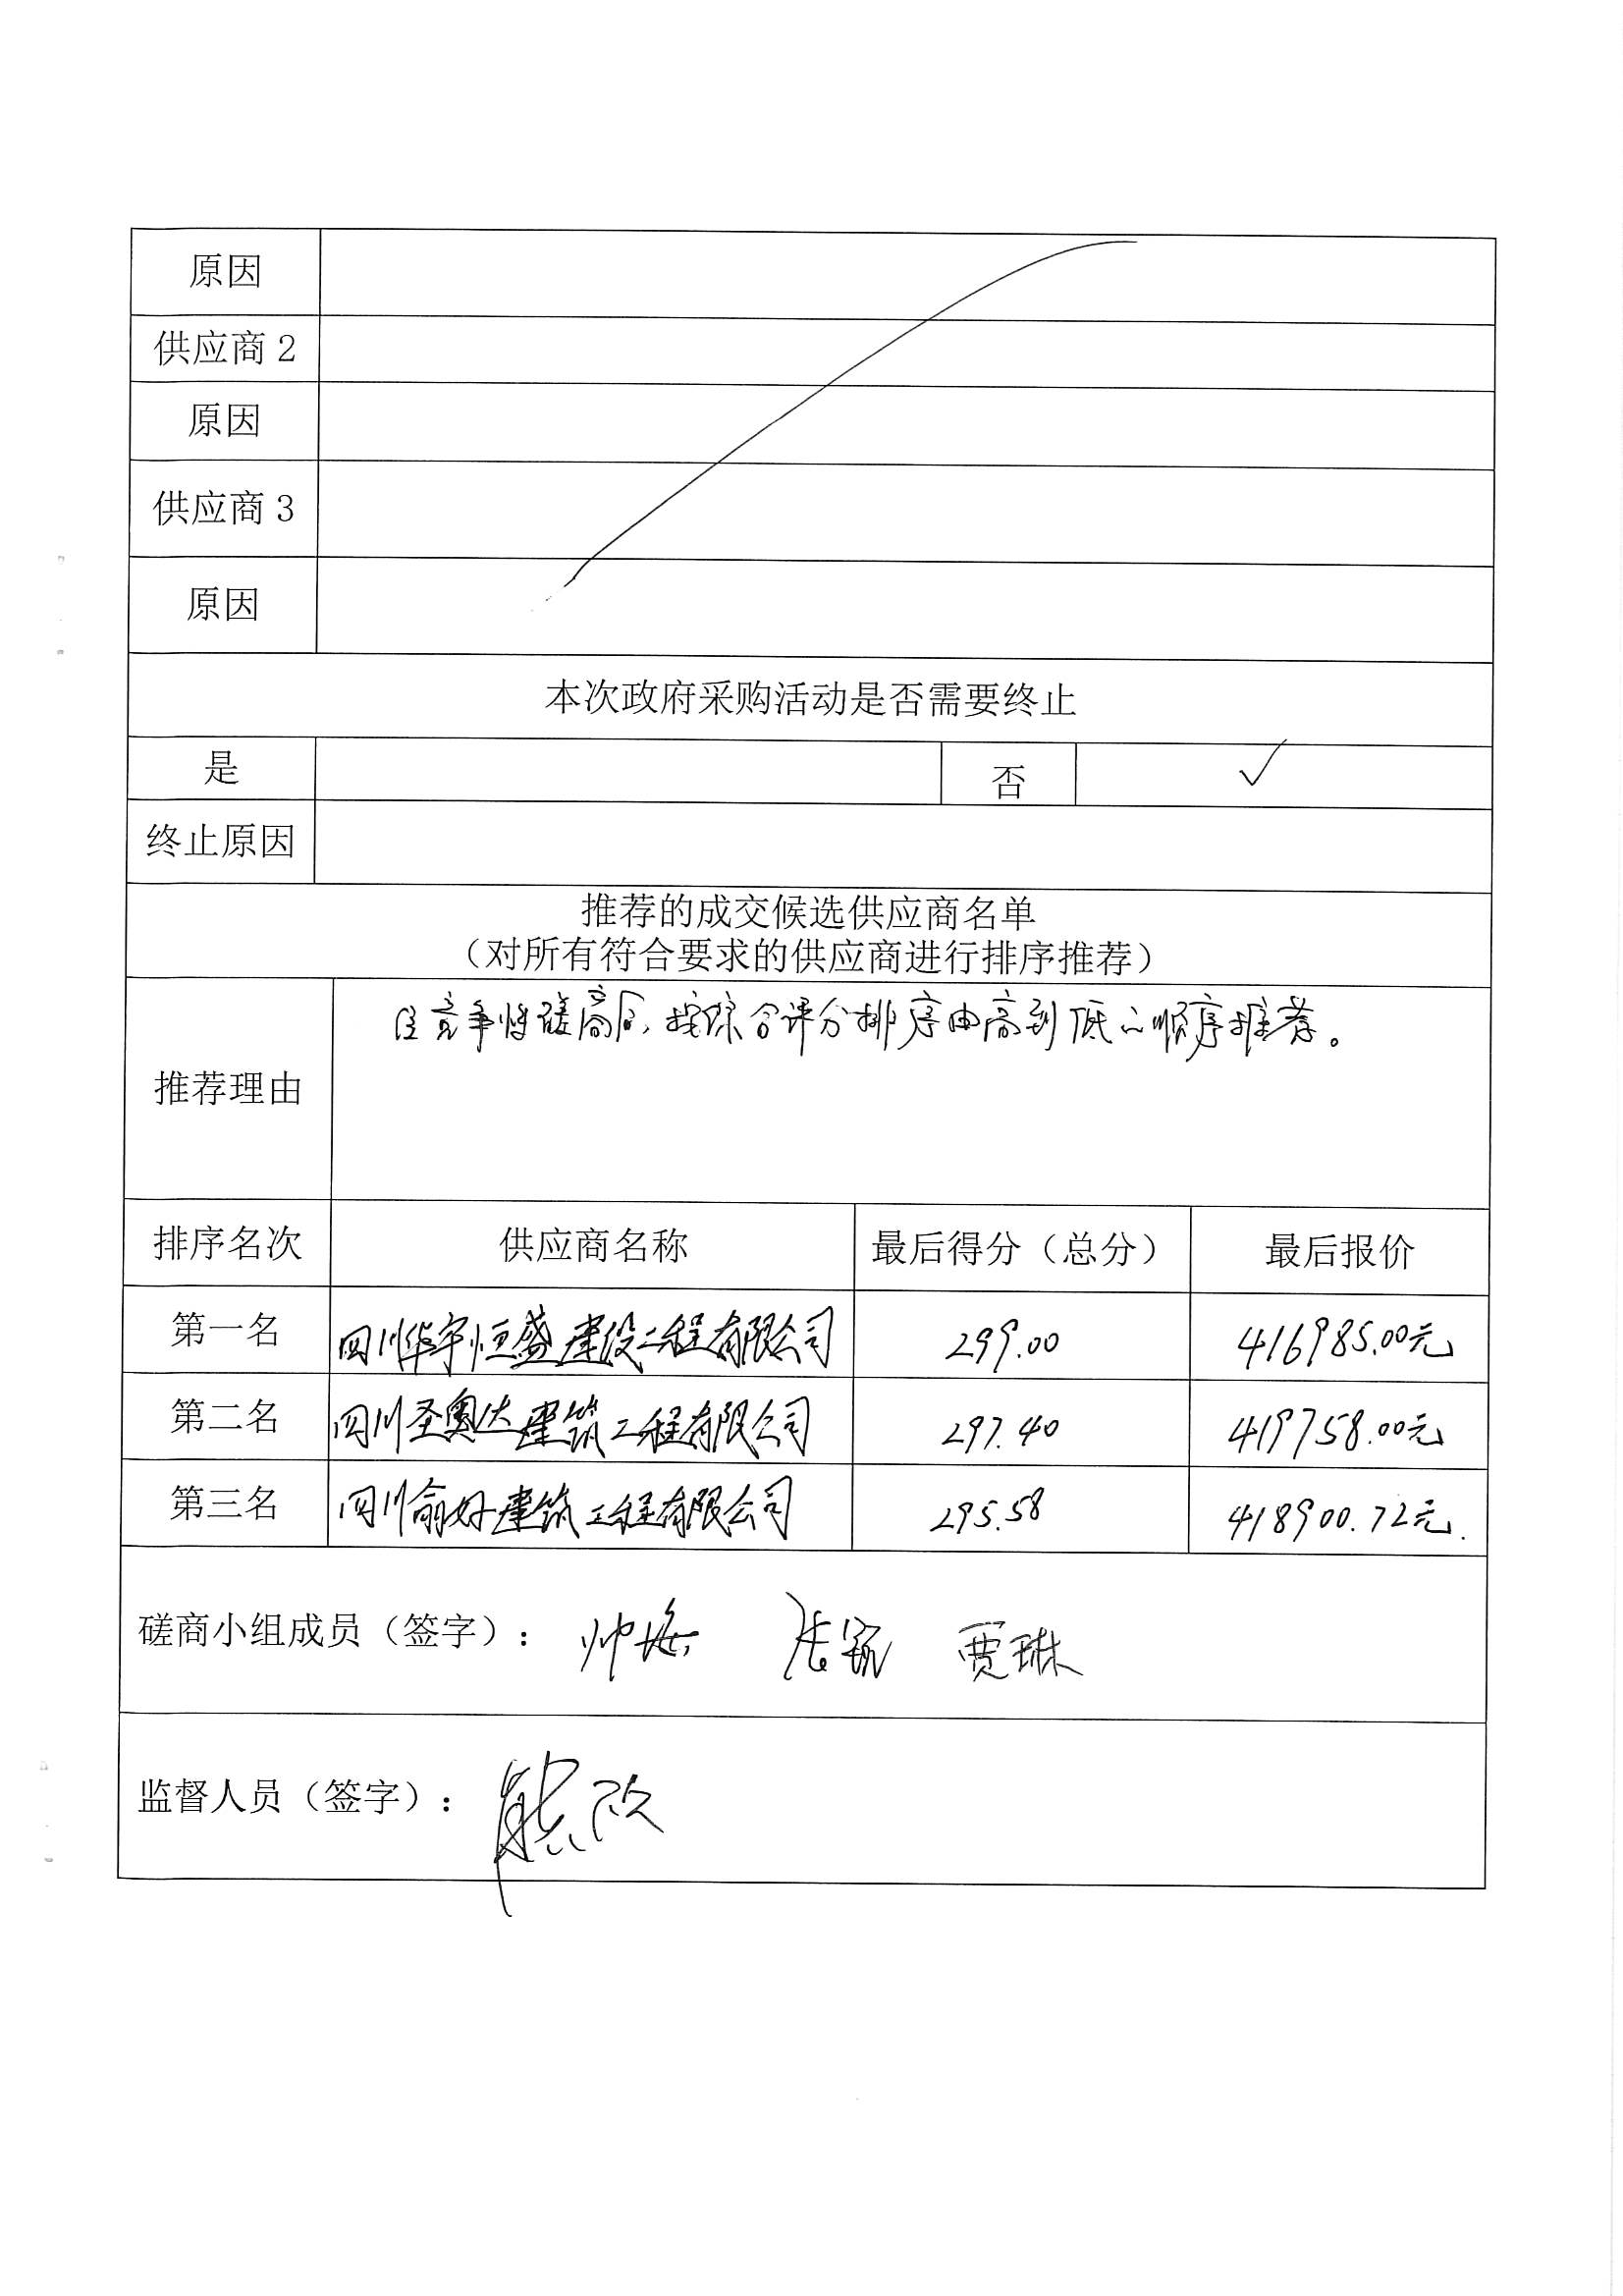 原因
供应商 2
原因
供应商 3
原因
本次政府采购活动是否需要终止
是 否 ✓
终止原因
推荐的成交候选供应商名单
（对所有符合要求的供应商进行排序推荐）
推荐理由 竞争性磋商后，按综合评分排序由高到低的顺序推荐。
排序名次 供应商名称 最后得分（总分） 最后报价
第一名 四川华宇恒盛建设工程有限公司 299.00 416985.00元
第二名 四川圣奥达建筑工程有限公司 297.40 419758.00元
第三名 四川俞好建筑工程有限公司 295.58 418900.72元.
磋商小组成员（签字）： 帅 贾琳
监督人员（签字）： 熊